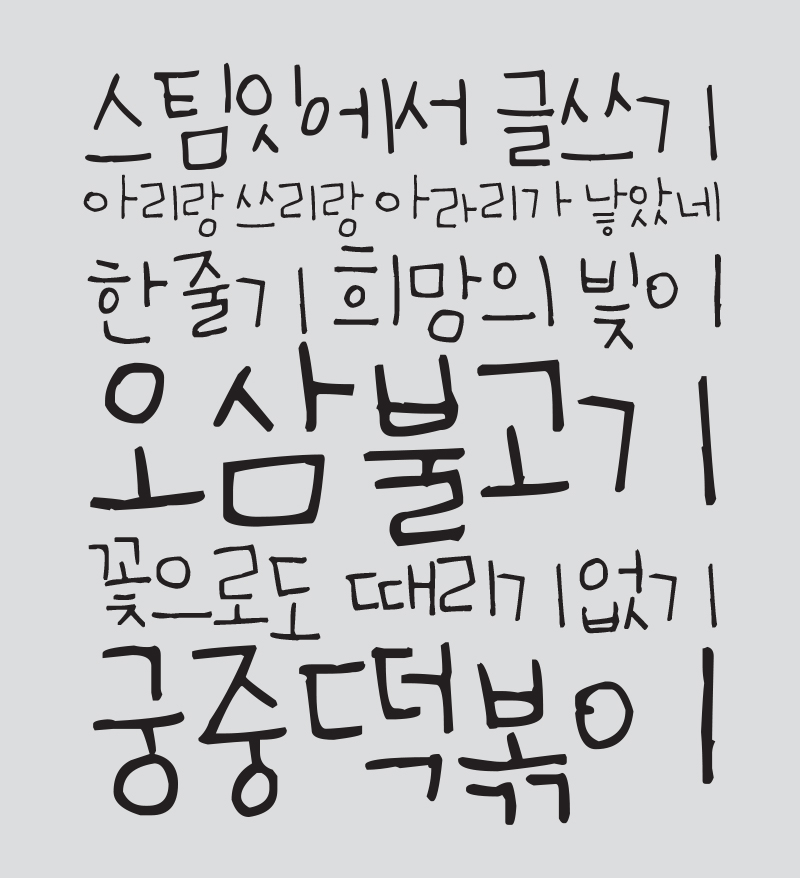 스팀잇에서 글쓰기
아리랑 쓰리랑 아라리가 낳았네
한 줄기 희망의 빛이
오삼불고기
꽃으로도 때리기 없기
궁중떡볶이